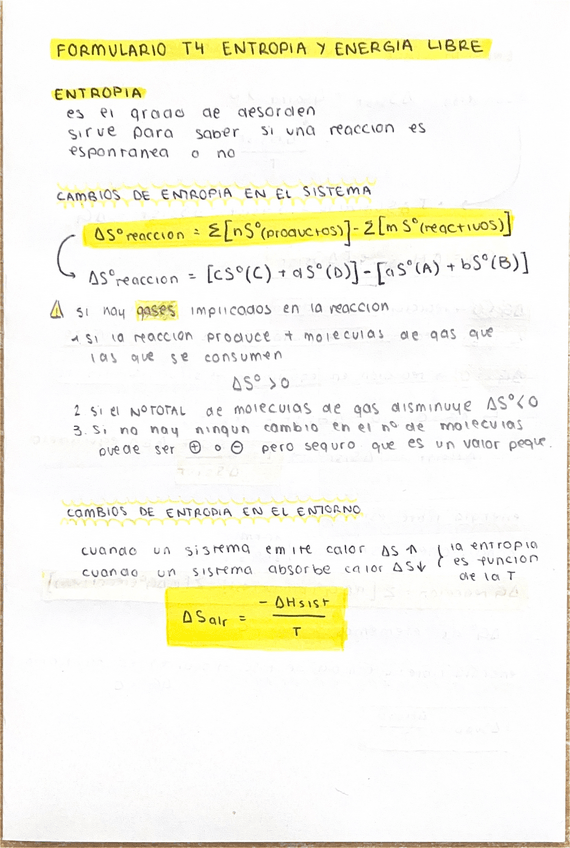 FORMULARIO T4 ENTROPIA Y ENERGIA LIBRE
ENTROPIA
es el grado de desorden
sirve para saber si una reaccion es
espontanea o no
CAMBIOS DE ENTROPIA EN EL SISTEMA
ΔS°reaccion = Σ[nS°(productos)] - Σ[mS°(reactivos)]
ΔS°reaccion = [cS°(C) + dS°(D)] - [aS°(A) + bS°(B)]
⚠ si hay gases implicados en la reaccion
1 si la reaccion produce + moleculas de gas que
las que se consumen
ΔS° > 0
2 si el NºTOTAL de moleculas de gas disminuye ΔS°<0
3. Si no hay ningun cambio en el nº de moleculas
puede ser ⊕ o ⊖ pero seguro que es un valor peque.
CAMBIOS DE ENTROPIA EN EL ENTORNO
cuando un sistema emite calor ΔS ↑ } la entropia
cuando un sistema absorbe calor ΔS↓ } es funcion
de la T
ΔSalr = -ΔHsist / T